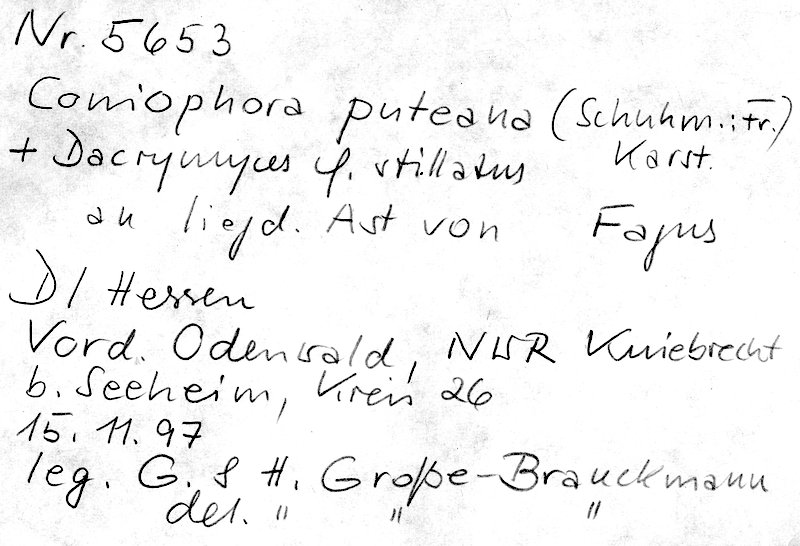 Nr. 5653
Coniophora puteana (Schuhm.: Fr.)
+ Dacrymyces cf. stillatus Karst.
an liegd. Ast von Fagus
D/ Hessen
Vord. Odenwald, NWR Kniebrecht
b. Seeheim, Kreis 26
15. 11. 97
leg. G. & H. Große-Brauckmann
det. " " "